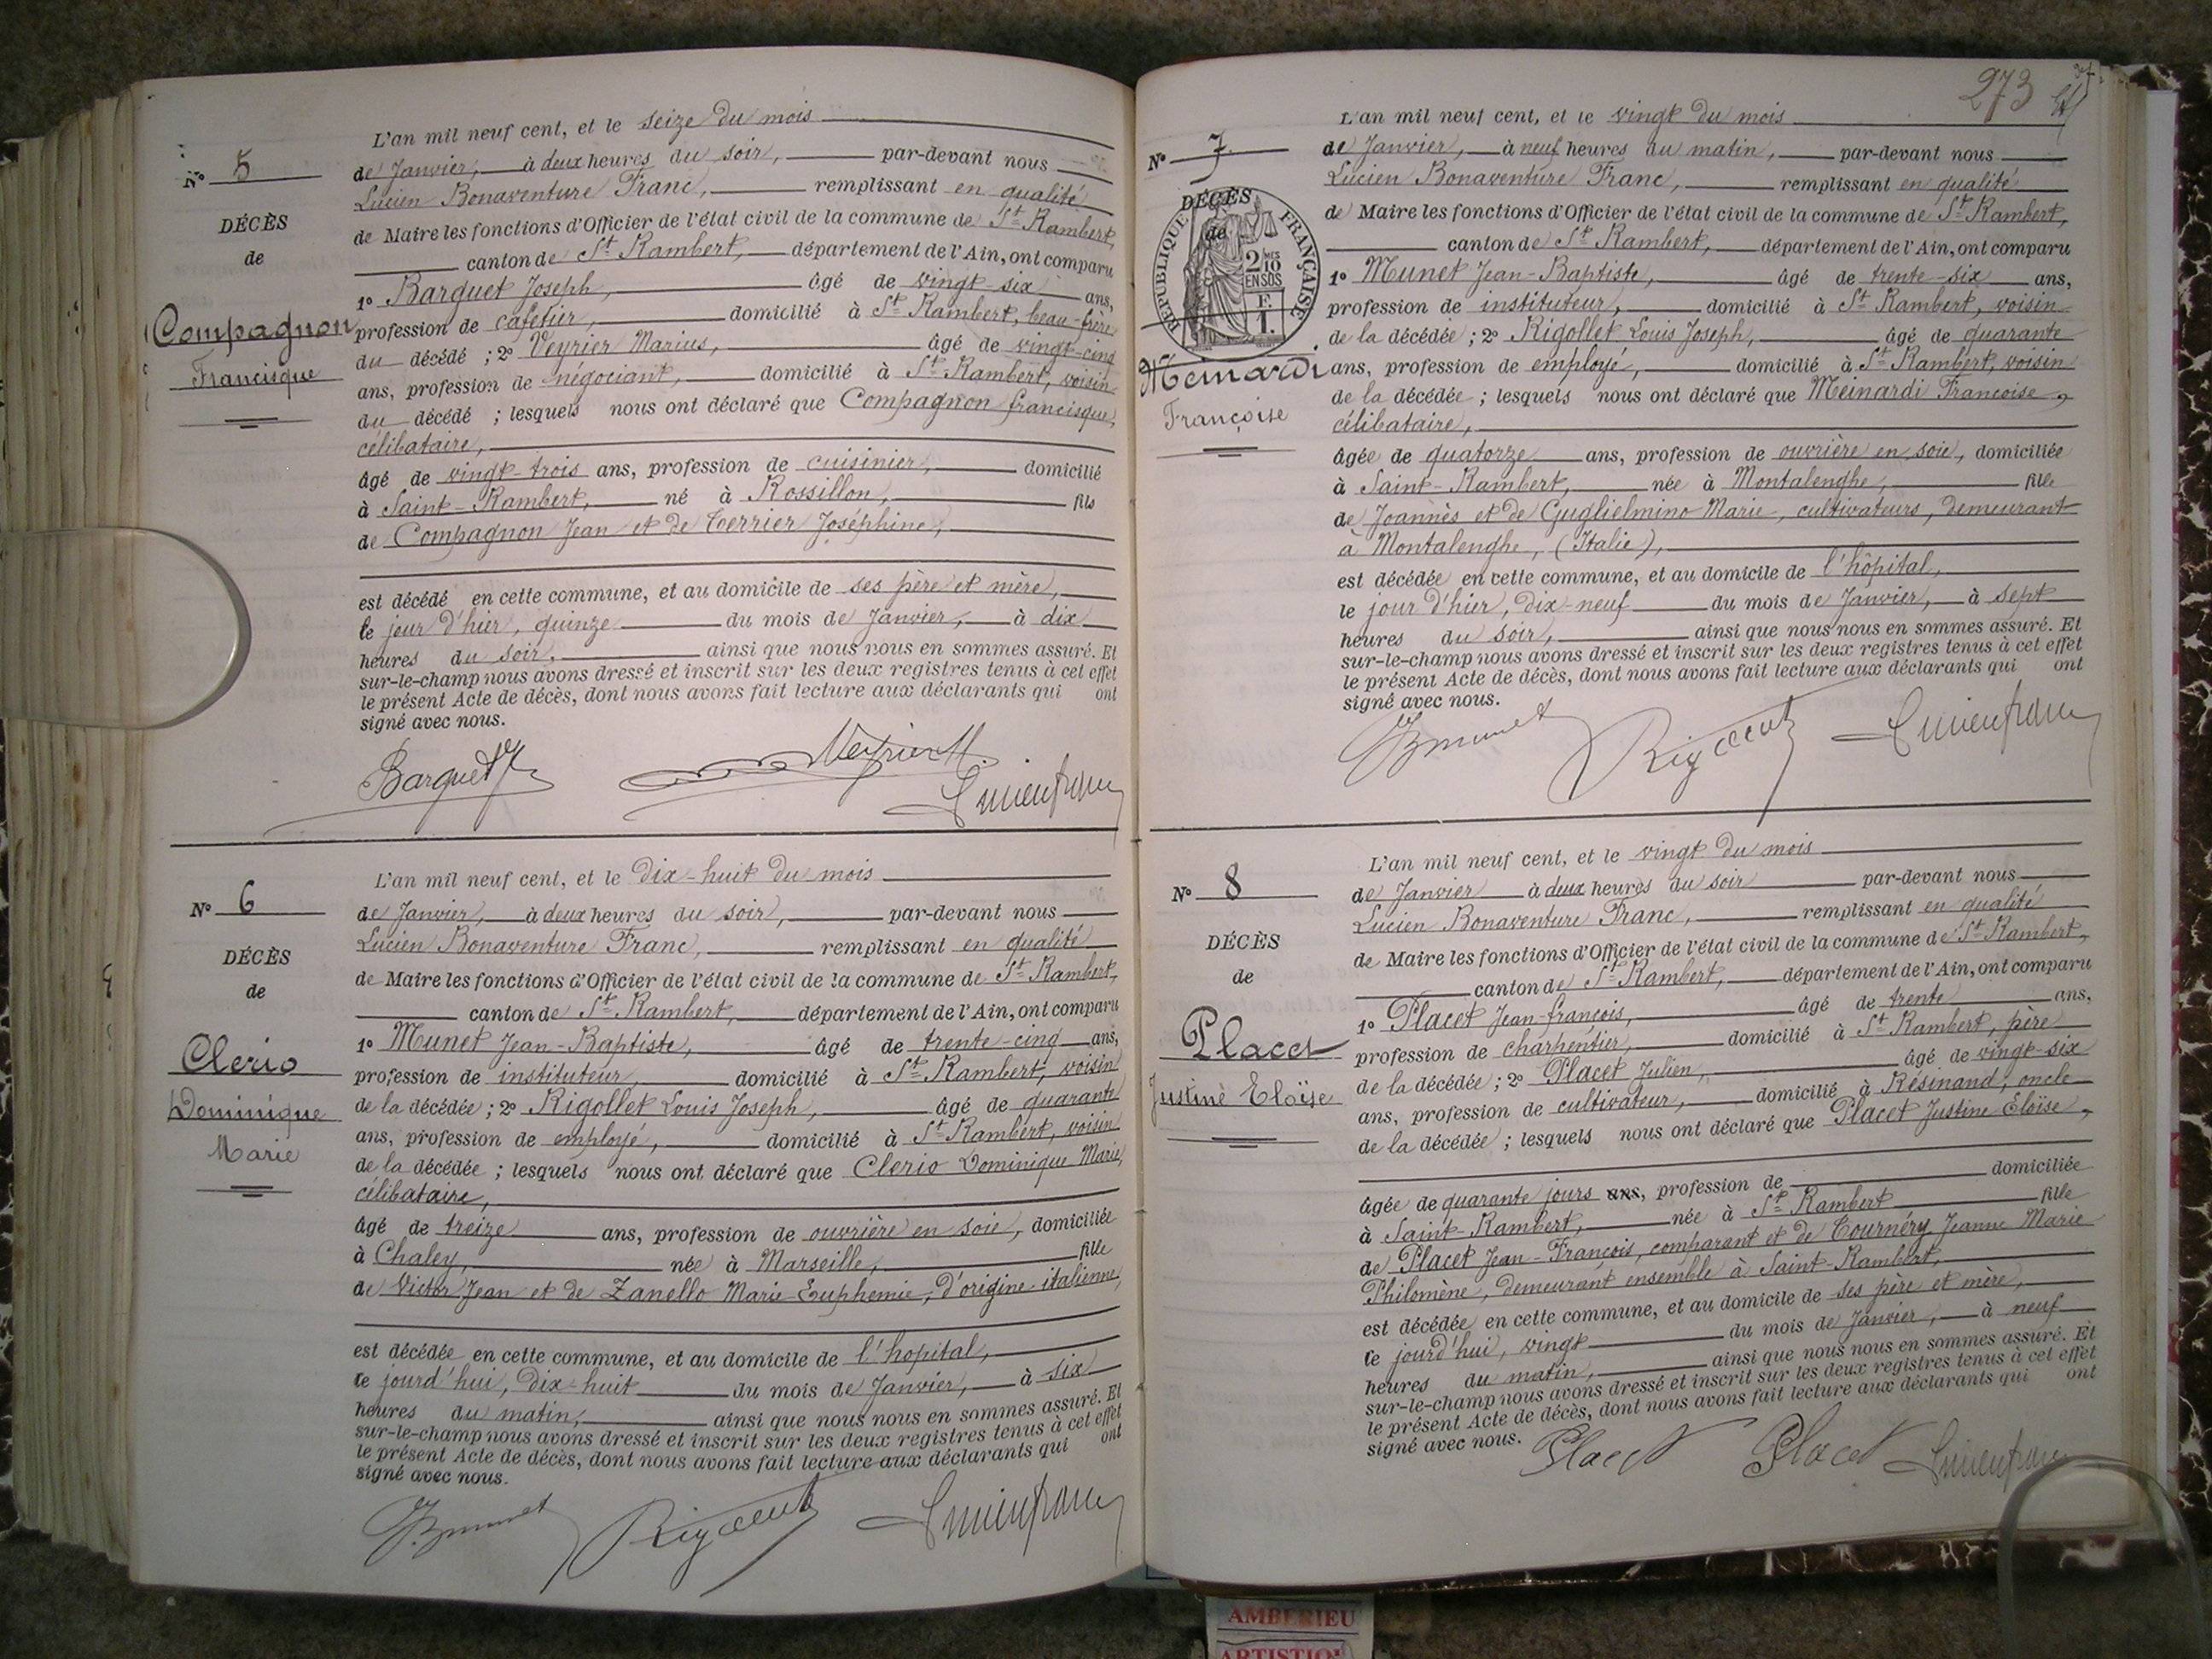 N° 5
DÉCÈS
de
Compagnon
Francisque
L'an mil neuf cent, et le seize du mois
de Janvier, à deux heures du soir, par-devant nous
Lucien Bonaventure Franc, remplissant en qualité
de Maire les fonctions d'Officier de l'état civil de la commune de St Rambert,
canton de St Rambert, département de l'Ain, ont comparu
1° Barquet Joseph, âgé de vingt-six ans,
profession de cafetier, domicilié à St Rambert, beau-frère
du décédé ; 2° Veyrier Marius, âgé de vingt-cinq
ans, profession de négociant, domicilié à St Rambert, voisin
du décédé ; lesquels nous ont déclaré que Compagnon francisque,
célibataire,
âgé de vingt-trois ans, profession de cuisinier, domicilié
à Saint-Rambert, né à Rossillon, fils
de Compagnon Jean et de Terrier Joséphine,
est décédé en cette commune, et au domicile de ses père et mère,
le jour d'hier, quinze du mois de Janvier, à dix
heures du soir, ainsi que nous nous en sommes assuré. Et
sur-le-champ nous avons dressé et inscrit sur les deux registres tenus à cet effet
le présent Acte de décès, dont nous avons fait lecture aux déclarants qui ont
signé avec nous.
Barquet J Veyrier M. Lucien franc
N° 6
DÉCÈS
de
Clerio
Dominique
Marie
L'an mil neuf cent, et le dix-huit du mois
de Janvier, à deux heures du soir, par-devant nous
Lucien Bonaventure Franc, remplissant en qualité
de Maire les fonctions d'Officier de l'état civil de la commune de St Rambert,
canton de St Rambert, département de l'Ain, ont comparu
1° Munet Jean-Baptiste, âgé de trente-cinq ans,
profession de instituteur, domicilié à St Rambert, voisin
de la décédée ; 2° Rigollet Louis Joseph, âgé de quarante
ans, profession de employé, domicilié à St Rambert, voisin
de la décédée ; lesquels nous ont déclaré que Clerio Dominique Marie,
célibataire,
âgé de treize ans, profession de ouvrière en soie, domiciliée
à Chaley, née à Marseille, fille
de Victor Jean et de Zanello Marie Euphemie, d'origine italienne,
est décédée en cette commune, et au domicile de l'hopital,
le jourd'hui, dix-huit du mois de Janvier, à six
heures du matin, ainsi que nous nous en sommes assuré. Et
sur-le-champ nous avons dressé et inscrit sur les deux registres tenus à cet effet
le présent Acte de décès, dont nous avons fait lecture aux déclarants qui ont
signé avec nous.
JB munet Rigollet Lucien franc
273
N° 7
DÉCÈS
de
RÉPUBLIQUE FRANÇAISE
2/10 MES
EN SUS
F.
1.
Meinardi
Françoise
L'an mil neuf cent, et le vingt du mois
de Janvier, à neuf heures du matin, par-devant nous
Lucien Bonaventure Franc, remplissant en qualité
de Maire les fonctions d'Officier de l'état civil de la commune de St Rambert,
canton de St Rambert, département de l'Ain, ont comparu
1° Munet Jean-Baptiste, âgé de trente-six ans,
profession de instituteur, domicilié à St Rambert, voisin
de la décédée ; 2° Rigollet Louis Joseph, âgé de quarante
ans, profession de employé, domicilié à St Rambert, voisin
de la décédée ; lesquels nous ont déclaré que Meinardi Francoise,
célibataire,
âgée de quatorze ans, profession de ouvrière en soie, domiciliée
à Saint-Rambert, née à Montalenghe, fille
de Joannès et de Guglielmino Marie, cultivateurs, demeurant
à Montalenghe, (Italie),
est décédée en cette commune, et au domicile de l'hôpital,
le jour d'hier, dix-neuf du mois de Janvier, à sept
heures du soir, ainsi que nous nous en sommes assuré. Et
sur-le-champ nous avons dressé et inscrit sur les deux registres tenus à cet effet
le présent Acte de décès, dont nous avons fait lecture aux déclarants qui ont
signé avec nous.
JB munet Rigollet Lucien franc
N° 8
DÉCÈS
de
Placet
Justine Eloïse
L'an mil neuf cent, et le vingt du mois
de Janvier à deux heures du soir par-devant nous
Lucien Bonaventure Franc, remplissant en qualité
de Maire les fonctions d'Officier de l'état civil de la commune de St Rambert,
canton de St Rambert, département de l'Ain, ont comparu
1° Placet Jean-françois, âgé de trente ans,
profession de charpentier, domicilié à St Rambert, père
de la décédée ; 2° Placet Julien, âgé de vingt-six
ans, profession de cultivateur, domicilié à Résinand, oncle
de la décédée ; lesquels nous ont déclaré que Placet Justine Eloïse,
âgée de quarante jours ans, profession de domiciliée
à Saint-Rambert, née à St Rambert fille
de Placet Jean-François, comparant et de Tournéry Jeanne Marie
Philomène, demeurant ensemble à Saint-Rambert,
est décédée en cette commune, et au domicile de ses père et mère,
le jourd'hui, vingt du mois de Janvier, à neuf
heures du matin, ainsi que nous nous en sommes assuré. Et
sur-le-champ nous avons dressé et inscrit sur les deux registres tenus à cet effet
le présent Acte de décès, dont nous avons fait lecture aux déclarants qui ont
signé avec nous.
Placet Placet Lucien franc
AMBERIEU